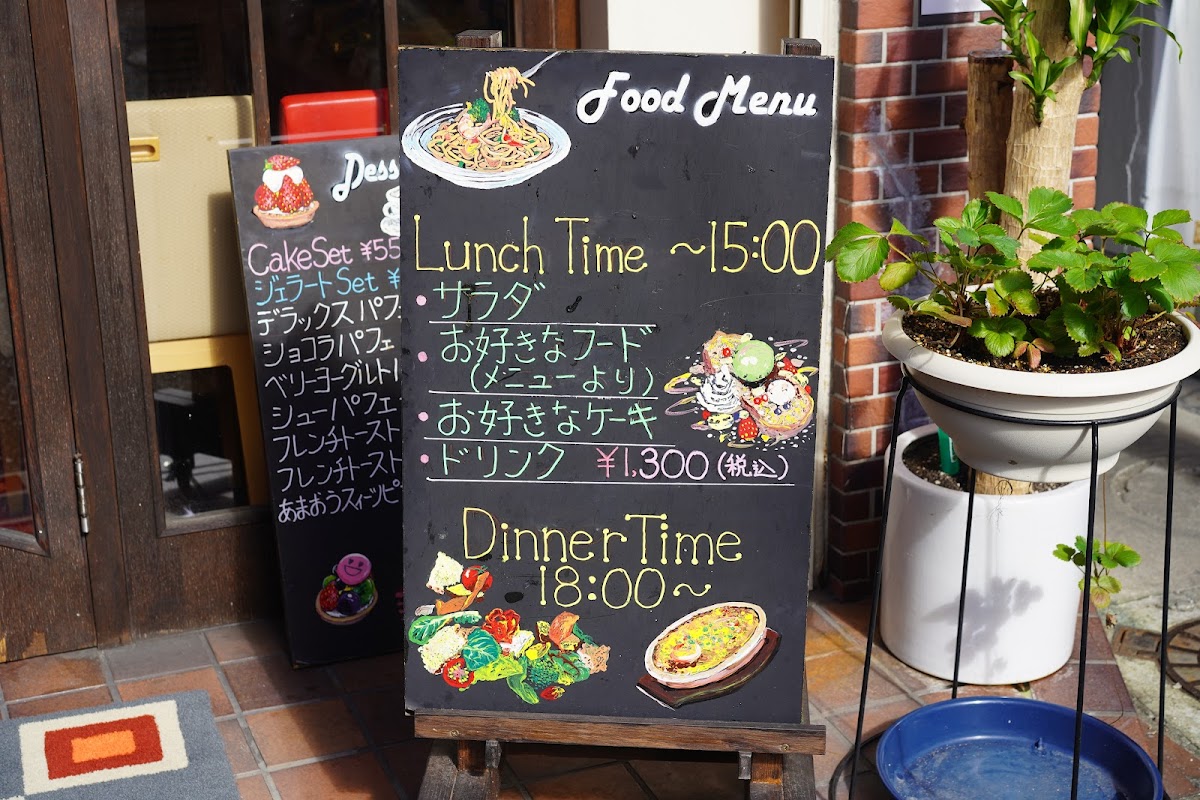 Food Menu
Lunch Time ~15:00
・サラダ
・お好きなフード
(メニューより)
・お好きなケーキ
・ドリンク ¥1,300(税込)
Dinner Time
18:00~
CakeSet ¥55
ジェラートSet ¥
デラックスパフ
ショコラパフェ
ベリーヨーグルト
シューパフェ
フレンチトースト
フレンチトースト
あまおうスイーツピ